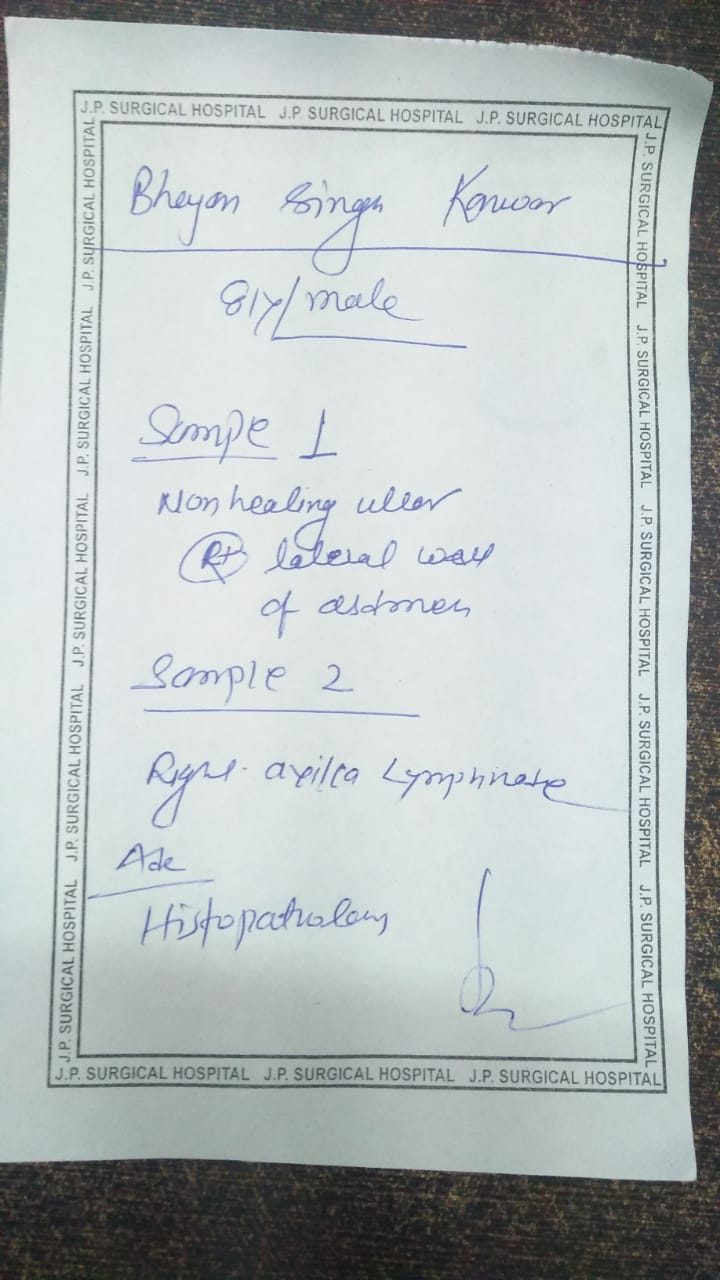 J.P. SURGICAL HOSPITAL J.P. SURGICAL HOSPITAL J.P. SURGICAL HOSPITAL
Singh Kanwar
81y/male
Sample 1
Non healing ulcer
Rt lateral wall
of abdomen
Sample 2
Right axilla Lymphnode
Adv
Histopathology
J.P. SURGICAL HOSPITAL J.P. SURGICAL HOSPITAL J.P. SURGICAL HOSPITAL
J.P. SURGICAL HOSPITAL J.P. SURGICAL HOSPITAL J.P. SURGICAL HOSPITAL J.P. SURGICAL HOSPITAL J.P. SURGICAL HOSPITAL
J.P. SURGICAL HOSPITAL J.P. SURGICAL HOSPITAL J.P. SURGICAL HOSPITAL J.P. SURGICAL HOSPITAL J.P. SURGICAL HOSPITAL